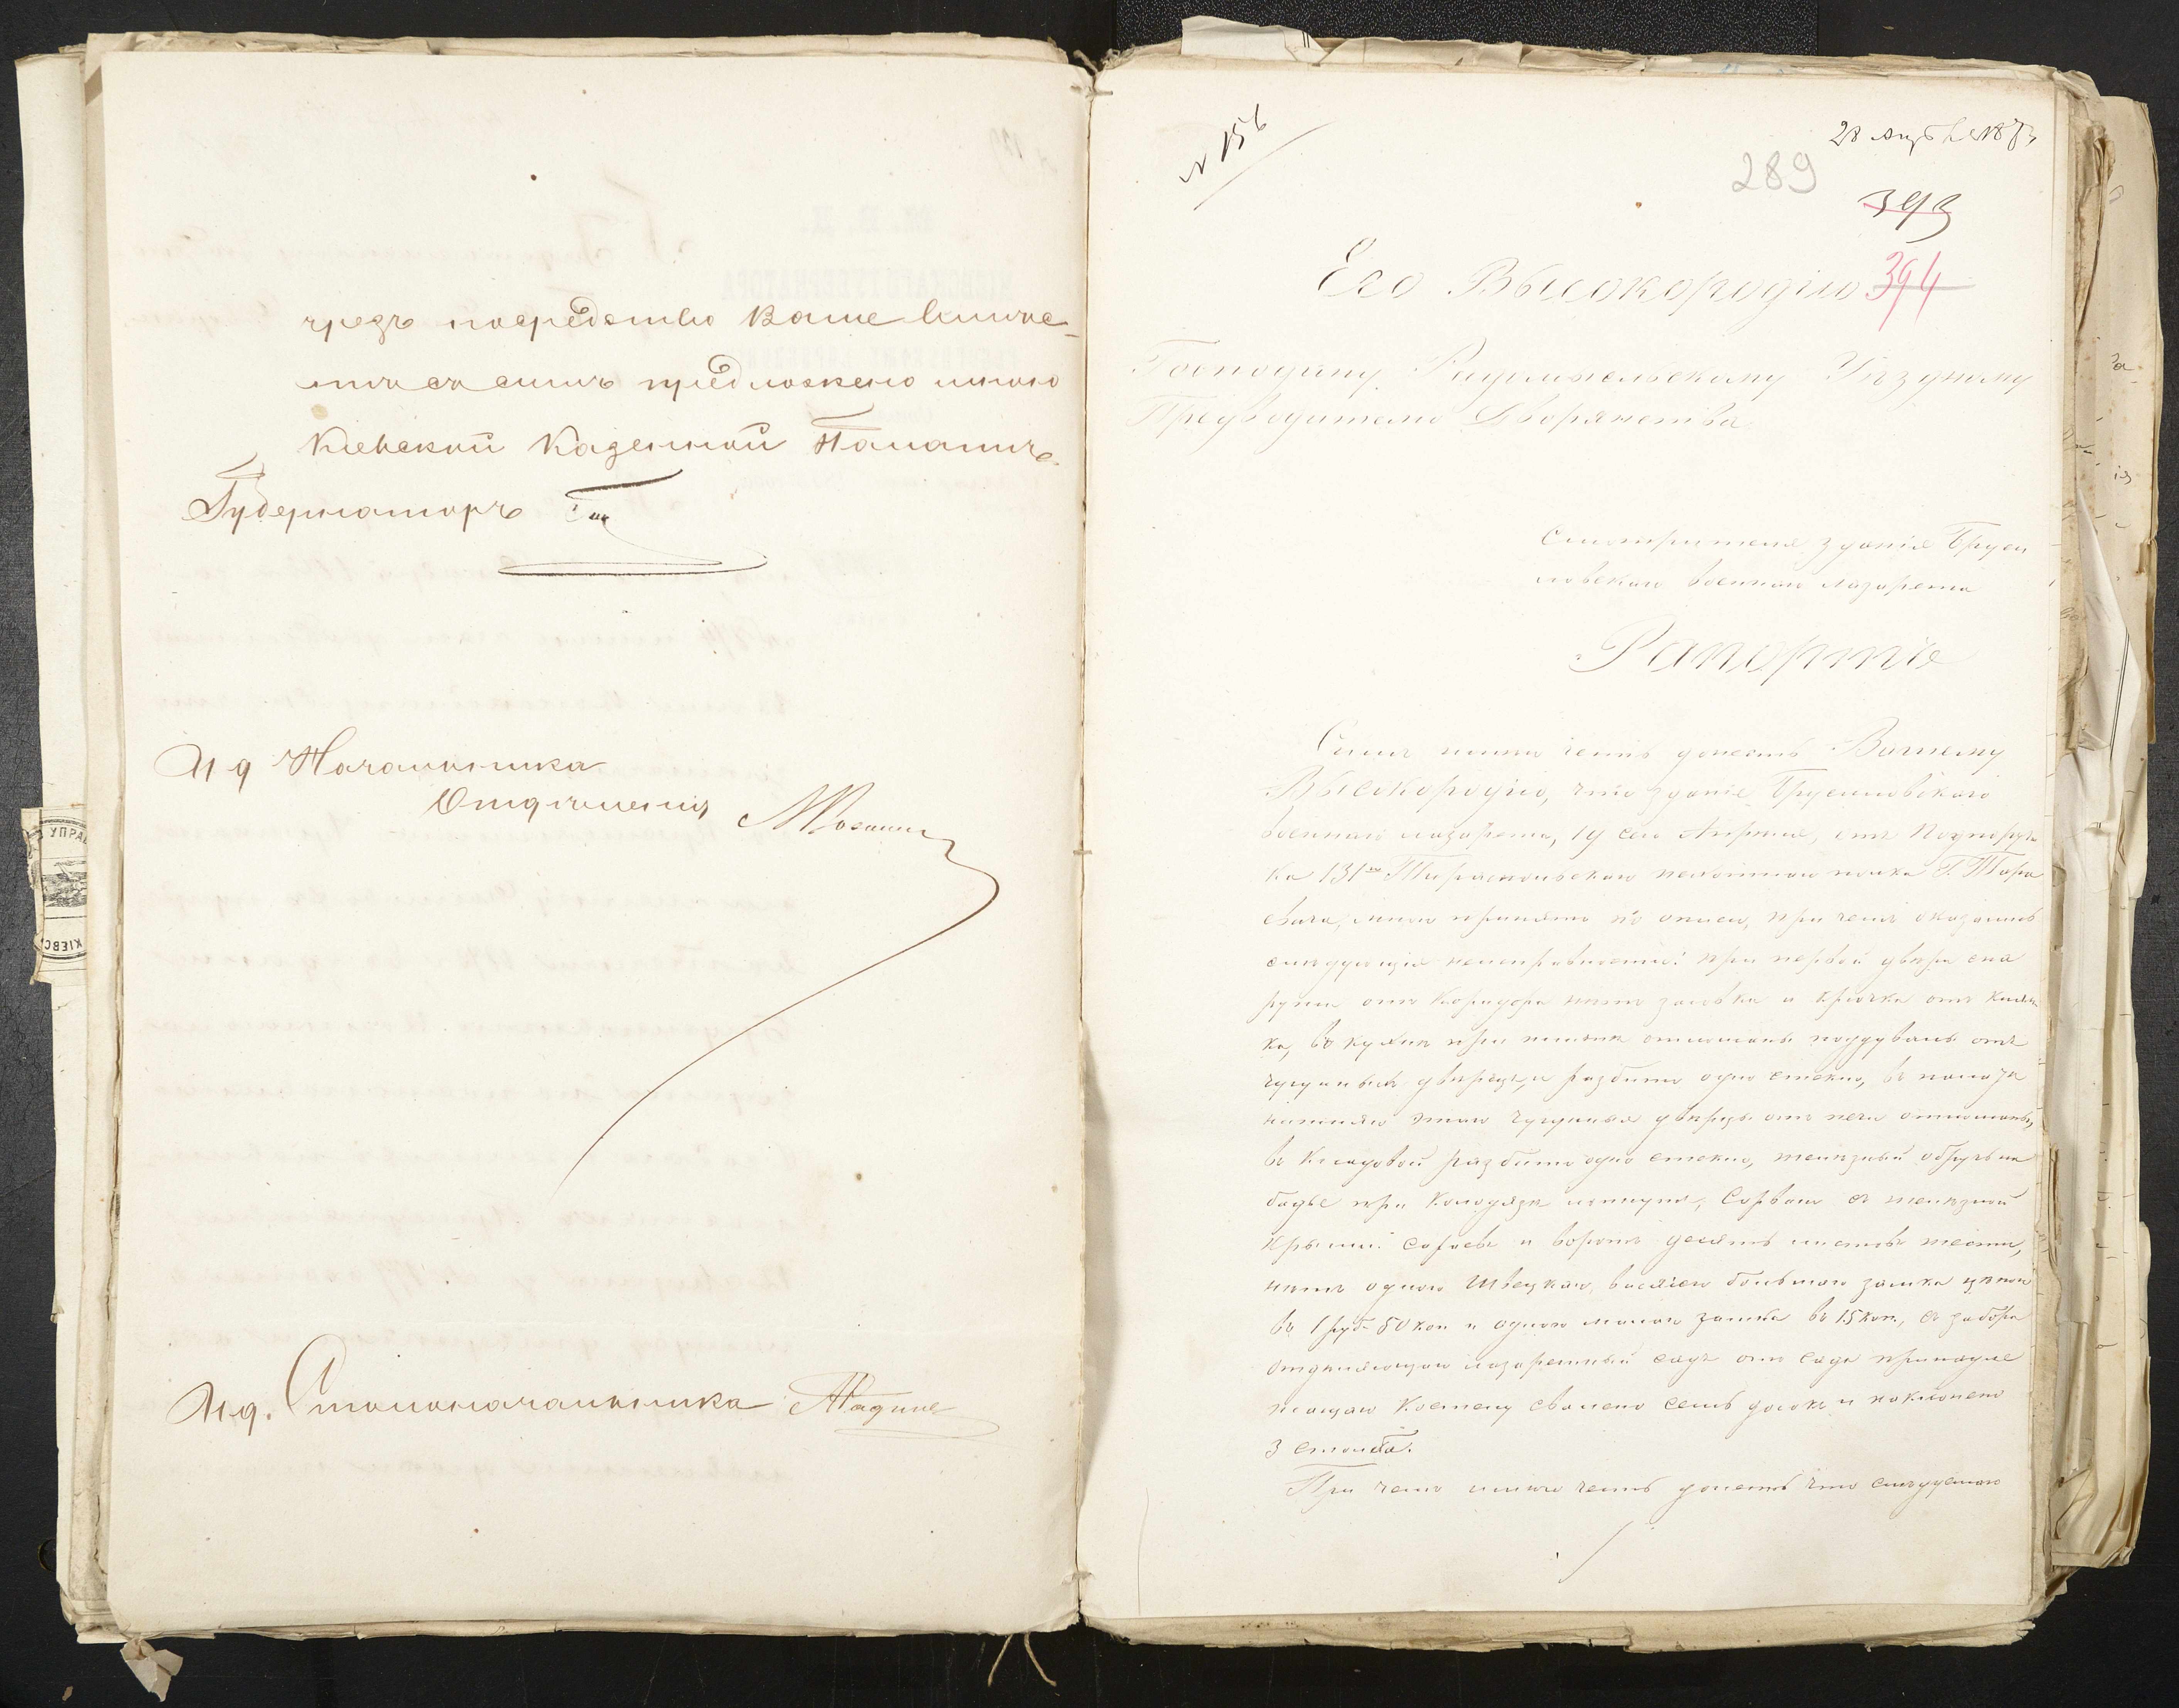 чрезъ посредство Ваше вмѣс-
тѣ съ симъ предложено мною
Кіевской Казенной Палатѣ.
Губернаторъ
И д Начальника
Отдѣленія
И. д. Столоначальника
УПРА
КІЕВС
№ 156
28 Апр 1873
289
393
394
Его Высокородію
Господину Радомысльскому Уѣздному
Предводителю Дворянства
Смотрителя зданія Бруси
ловскаго военнаго лазарета
Рапортъ
Симъ имѣю честь донесть Вашему
Высокородію, что зданіе Брусиловскаго
военнаго лазарета, 19 сего Апрѣля, отъ Подпоручи
ка 131го Тираспольскаго пехотнаго полка Г. Тара
севича, мною принято по описи, при чемъ оказались
слѣдующія неисправности: при первой двери сна
ружи отъ Коридора нѣтъ засовки и крючка отъ
ка, въ кухнѣ при плитѣ отломаны поддувалы отъ
чугуныхъ дверецъ, и разбито одно стекло, въ
нижняго этажа чугунныя дверцы отъ печи отломаны,
въ Кладовой разбито одно стекло, желѣзный обручъ на
бадье при Колодязѣ лопнулъ, Сорвано съ желѣзной
крыши Сараевъ и воротъ десять листовъ жести,
нѣтъ одного Швецкаго висячего большаго замка цѣною
въ 1 руб 50 коп и одного малаго замка въ 15 коп., съ забора
отдѣляющаго лазаретный садъ отъ сада принадле
жащаго Костелу свалено семь досокъ и наклонено
3 столба.
При чемъ имѣю честь донесть что слѣдуемаго